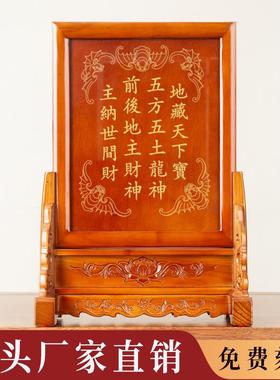 地藏天下寶
五方五土龍神
前後地主財神
主納世間財
头厂家直销
免费